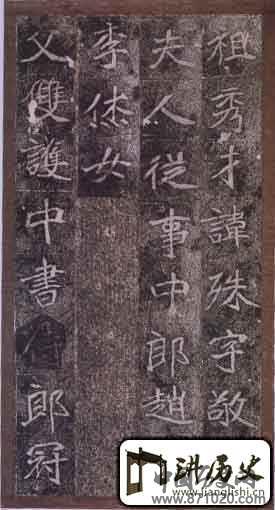 祖秀才諱殊字敬
夫人從事中郎趙
李休女
父雙護中書侍郎冠
讲历史
www.jianglishi.cn
www.871020.com